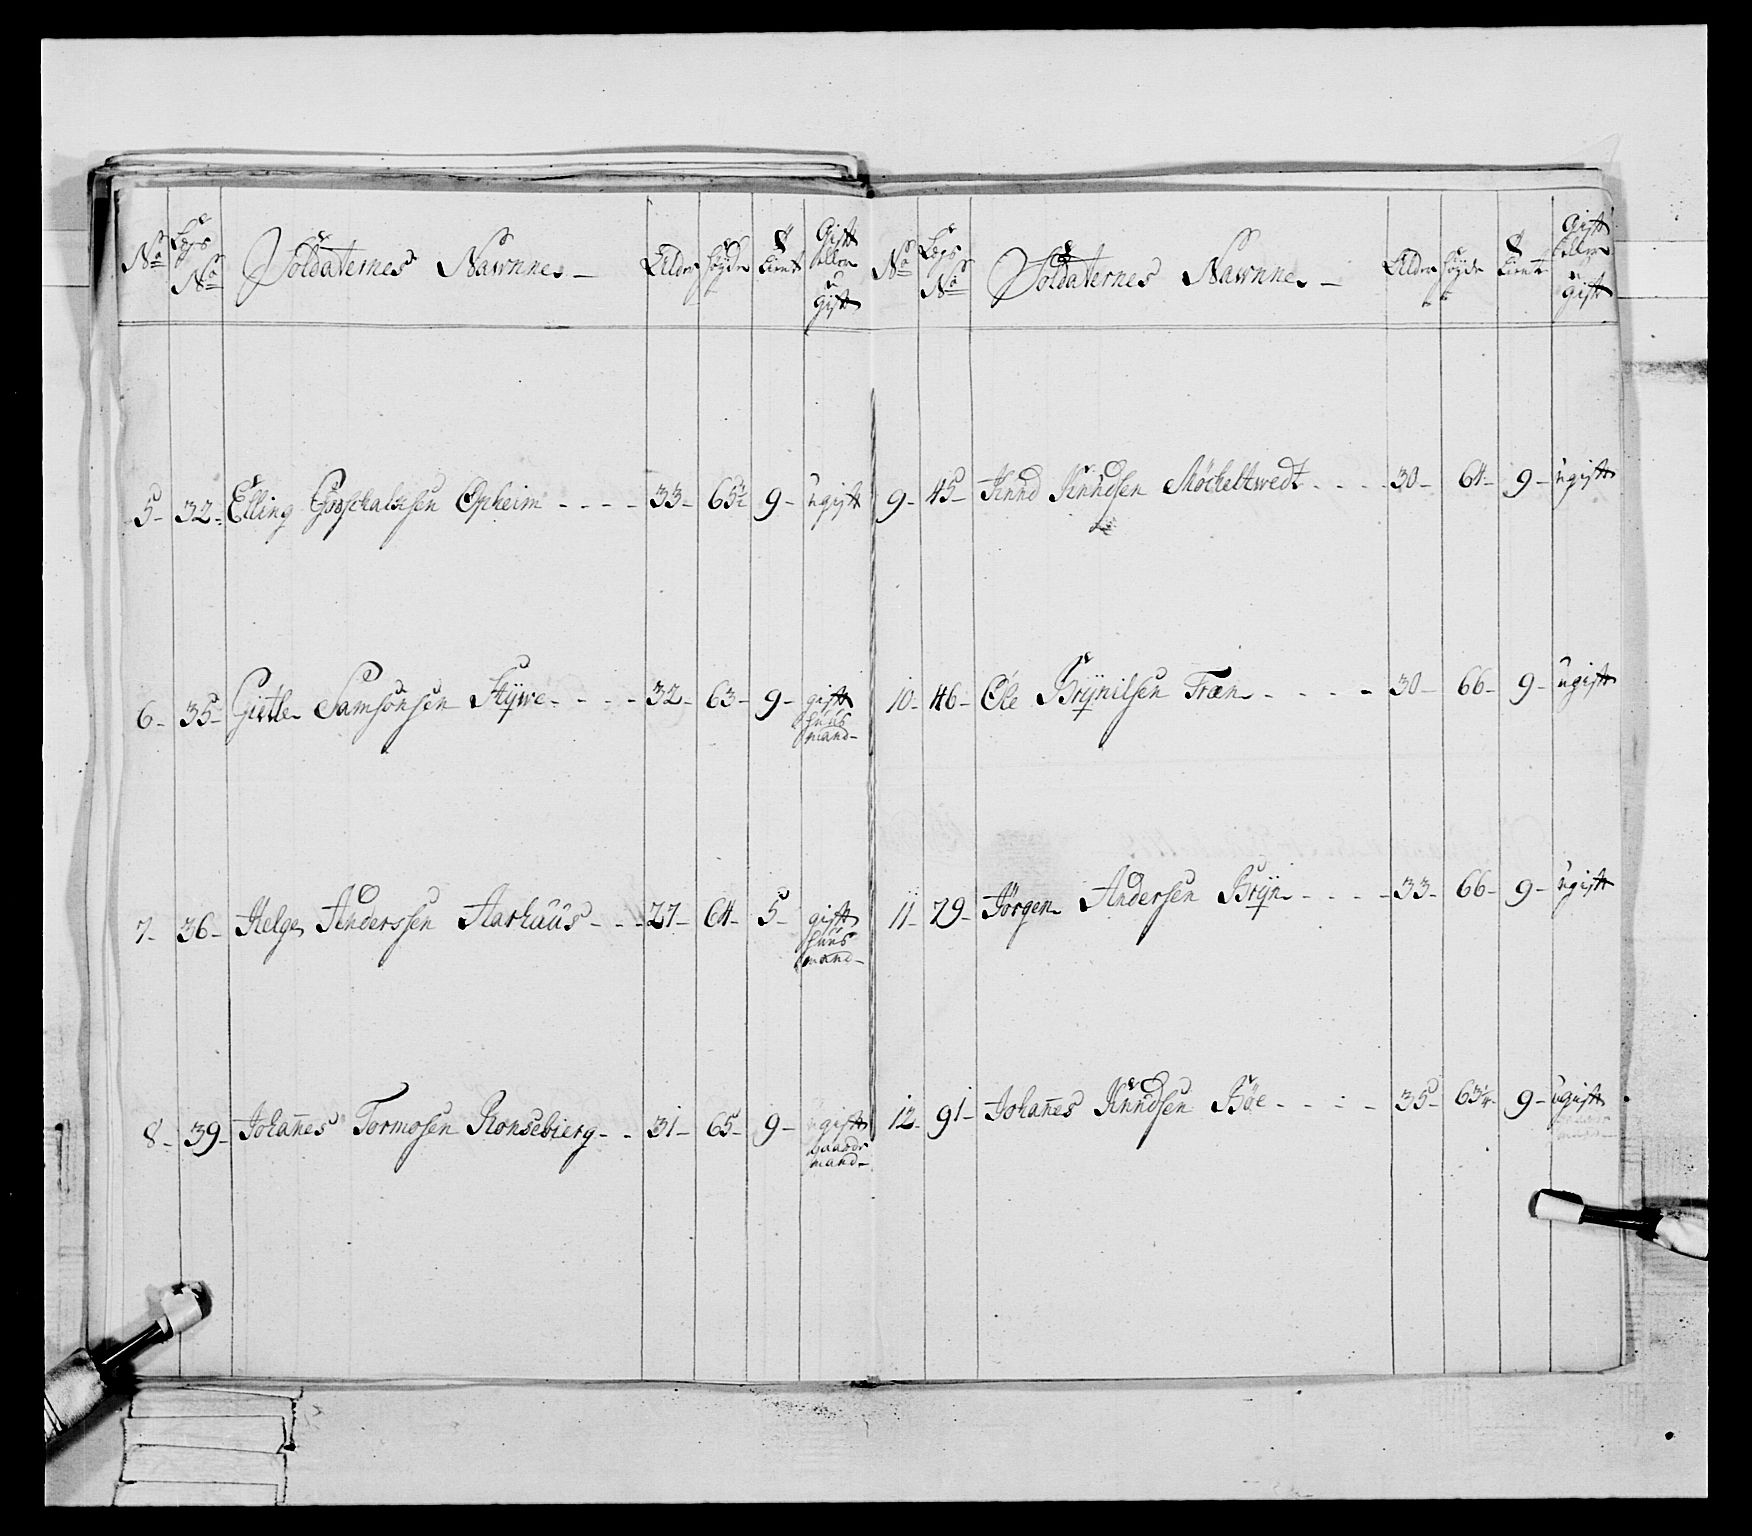 No Legs No Soldaternes Nawnne Alder Høyde Tient Gift eller u Gift
5 - 32 - Elling Opheim - - - - 33 - 65½ 9 - ugift
6 - 35 - Gietle Samsonsen Stywe - - - - 32 - 63 - 9 - gift
huus
mand -
7 - 36 - Helge Anderssen Aarhuus - - - 27 - 64 - 5 - gift
huus
mand -
8 - 39 - Johan̄es Tormosen Ronsebierg - - 31 - 65 - 9 - ugift
gaards
mand -
No Legs No Soldaternes Nawnne Alder Høyde Tient Gift eller u gift
9 - 45 - Knud Knudsen Møcheltwedt - - - - 30 - 64 - 9 - ugift
10 - 46 - Ole Brÿnilsen Fræn - - - - 30 - 66 - 9 - ugift
11 - 79 - Jørgen Andersen Brÿn - - - - 33 - 66 - 9 - ugift
12 - 91 - Johan̄es Knudsen Bøe - - - - 35 - 63¼ - 9 - ugift